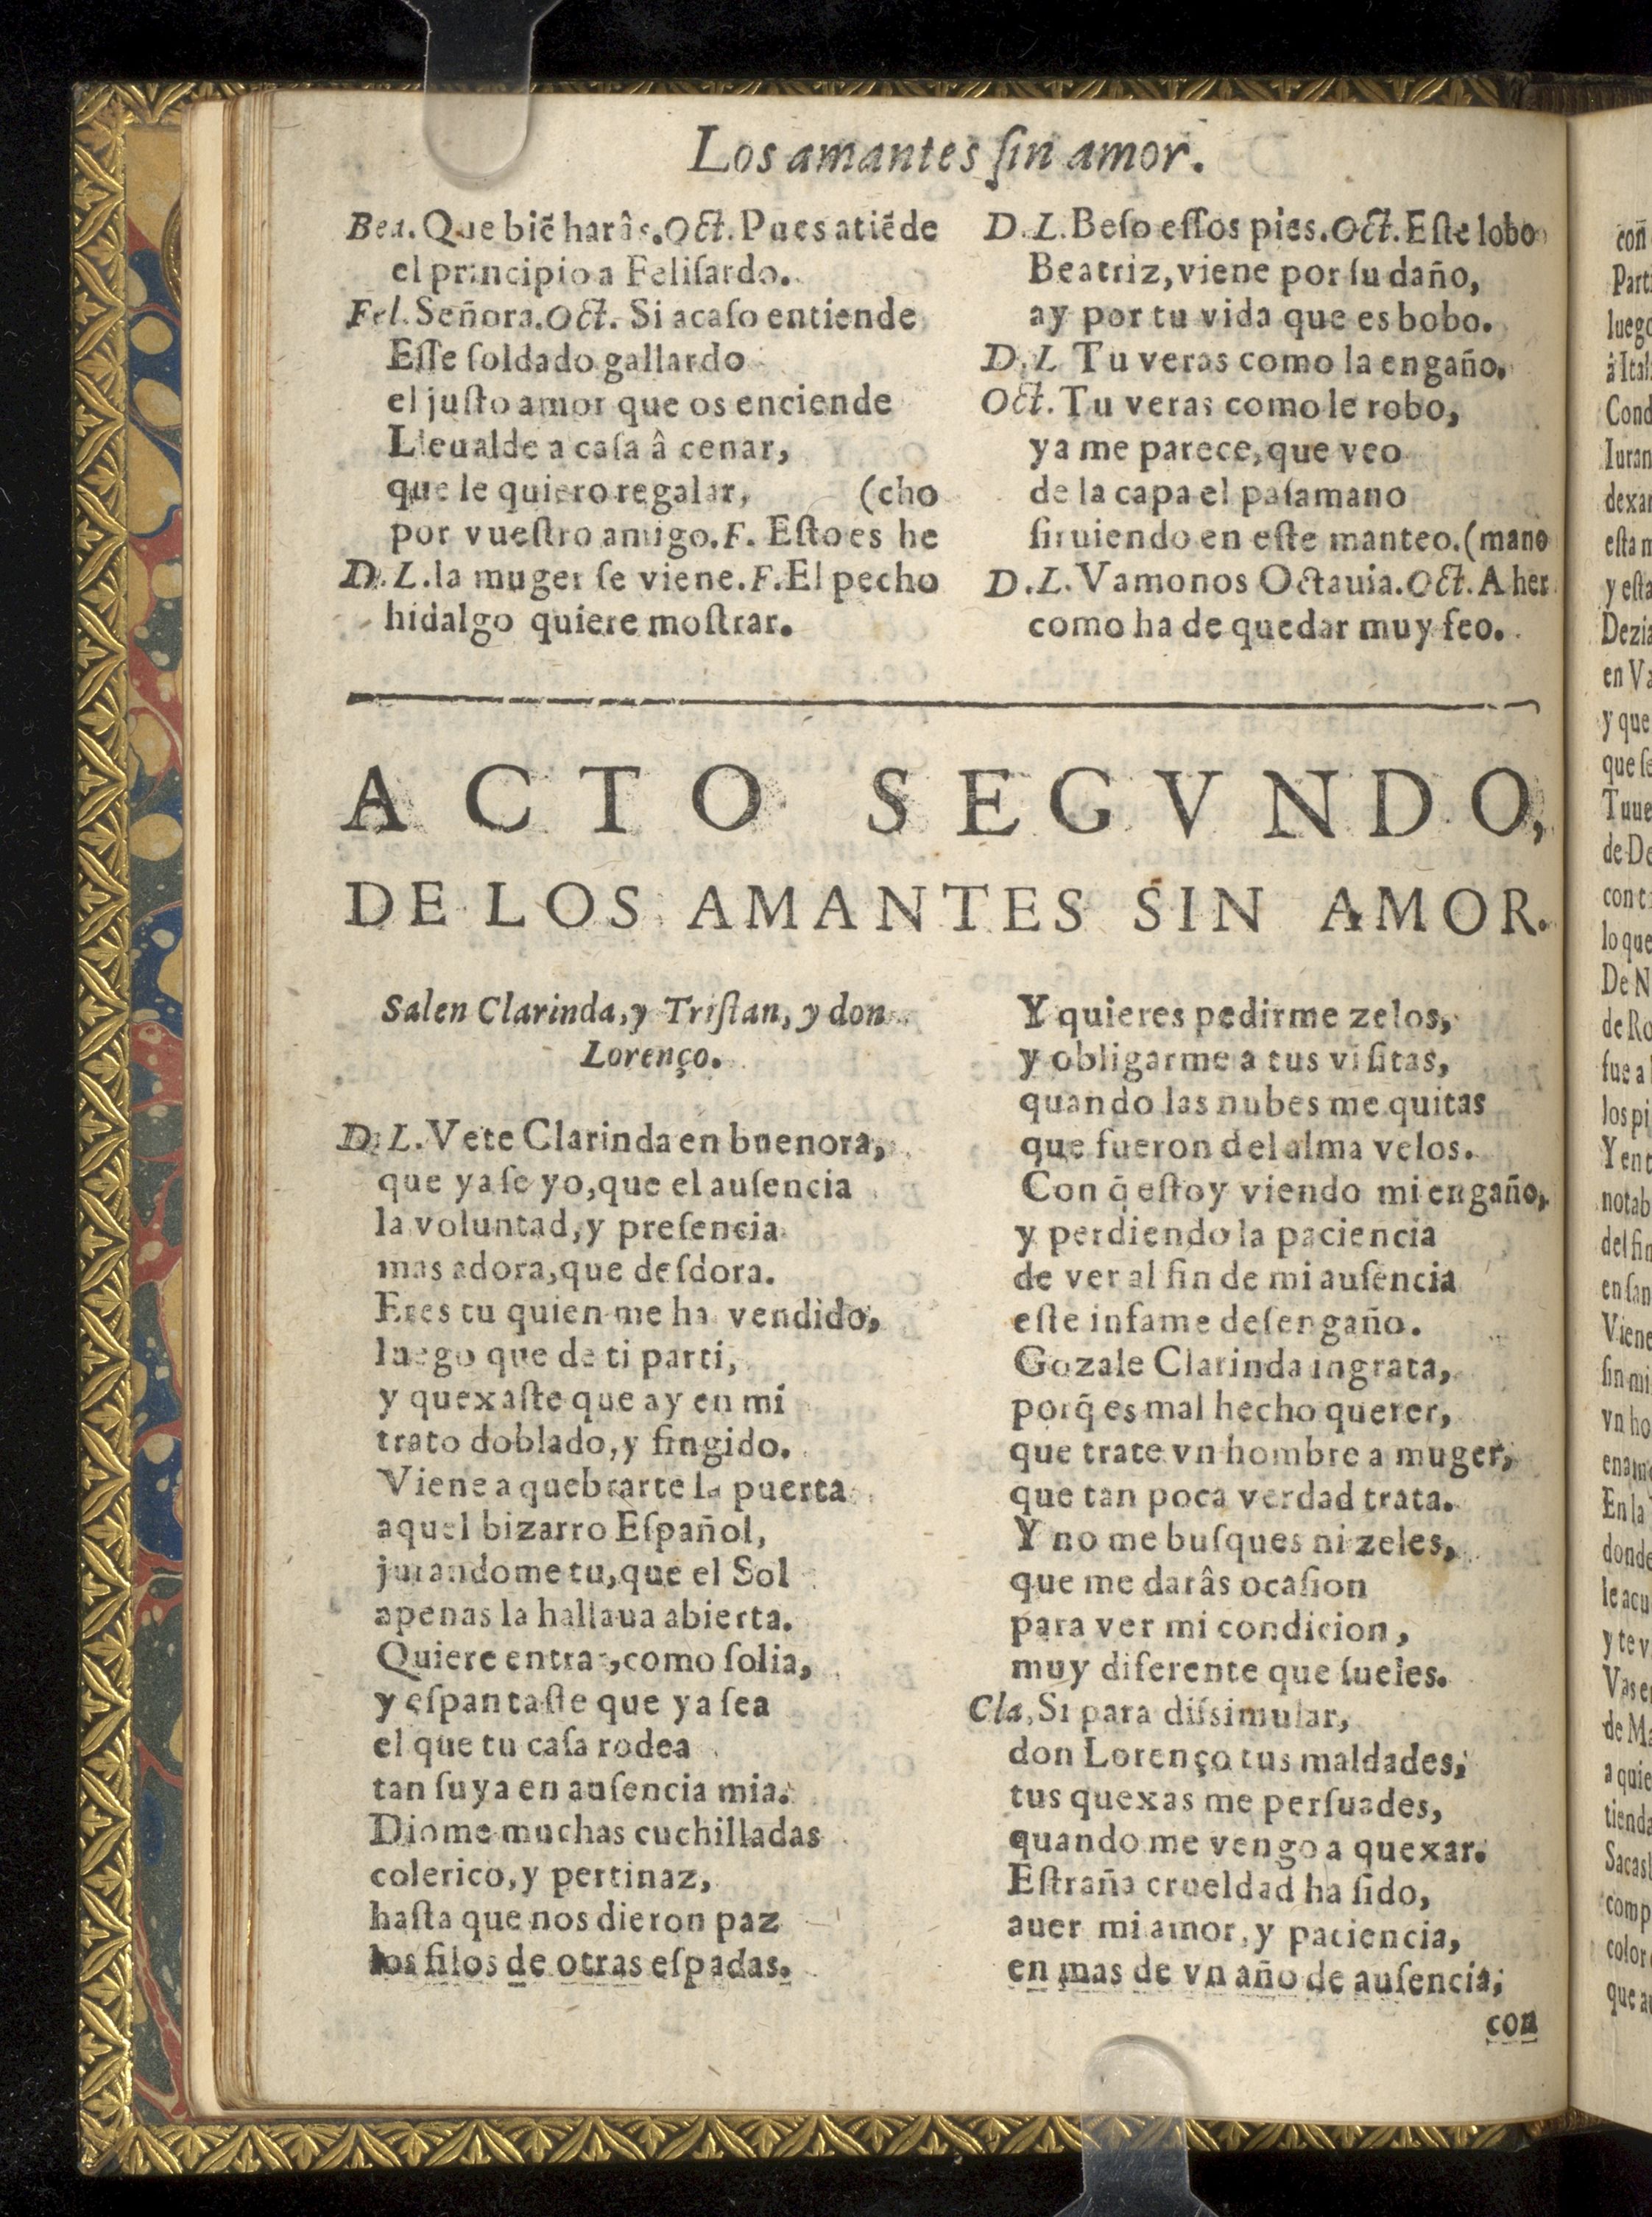 Los amantes ſin amor.
Bea. Que biẽ harâs. Oct. Pues atiẽde
el principio a Feliſardo.
Fel. Señora. Oct. Si acaſo entiende
Eſſe ſoldado gallardo
el juſto amor que os enciende
Lleualde a caſa â cenar,
que le quiero regalar, (cho
por vueſtro amigo. F. Eſto es he
D. L. la muger ſe viene. F. El pecho
hidalgo quiere moſtrar.
D. L. Beſo eſſos pies. Oct. Eſte lobo
Beatriz, viene por ſu daño,
ay por tu vida que es bobo.
D. L Tu veras como la engaño.
Oct. Tu veras como le robo,
ya me parece, que veo
de la capa el paſamano
ſiruiendo en eſte manteo. (mano
D. L. Vamonos Octauia. Oct. A her
como ha de quedar muy feo.
ACTO SEGVNDO,
DE LOS AMANTES SIN AMOR.
Salen Clarinda, y Triſtan, y don
Lorenço.
D. L. Vete Clarinda en buenora,
que ya ſe yo, que el auſencia
la voluntad, y preſencia
mas adora, que deſdora.
Eres tu quien me ha vendido,
luego que de ti parti,
y quexaſte que ay en mi
trato doblado, y fingido.
Viene a quebrarte la puerta
aquel bizarro Eſpañol,
jurandome tu, que el Sol
apenas la hallaua abierta.
Quiere entrar, como ſolia,
y eſpantaſte que ya ſea
el que tu caſa rodea
tan ſuya en auſencia mia.
Diome muchas cuchilladas
colerico, y pertinaz,
haſta que nos dieron paz
los filos de otras eſpadas.
Y quieres pedirme zelos,
y obligarme a tus viſitas,
quando las nubes me quitas
que fueron del alma velos.
Con q̃ eſtoy viendo mi engaño,
y perdiendo la paciencia
de ver al fin de mi auſencia
eſte infame deſengaño.
Gozale Clarinda ingrata,
porq̃ es mal hecho querer,
que trate vn hombre a muger,
que tan poca verdad trata.
Y no me buſques ni zeles,
que me darâs ocaſion
para ver mi condicion,
muy diferente que ſueles.
Cla, Si para diſsimular,
don Lorenço tus maldades,
tus quexas me perſuades,
quando me vengo a quexar.
Eſtraña crueldad ha ſido,
auer mi amor, y paciencia,
en mas de vn año de auſencia,
con
coñ
Part
luego
Cond
Iuran
dexar
eſta m
y eſta
Dezia
en Va
y que
que ſe
Tuue
de De
con t
lo que
De N
de Ro
fue a
los pi
Y ent
notab
del fin
en ſan
Viene
ſin mi
vn ho
En la
donde
le acu
y te v
Vas e
de Ma
a quie
tienda
comp
color
que a